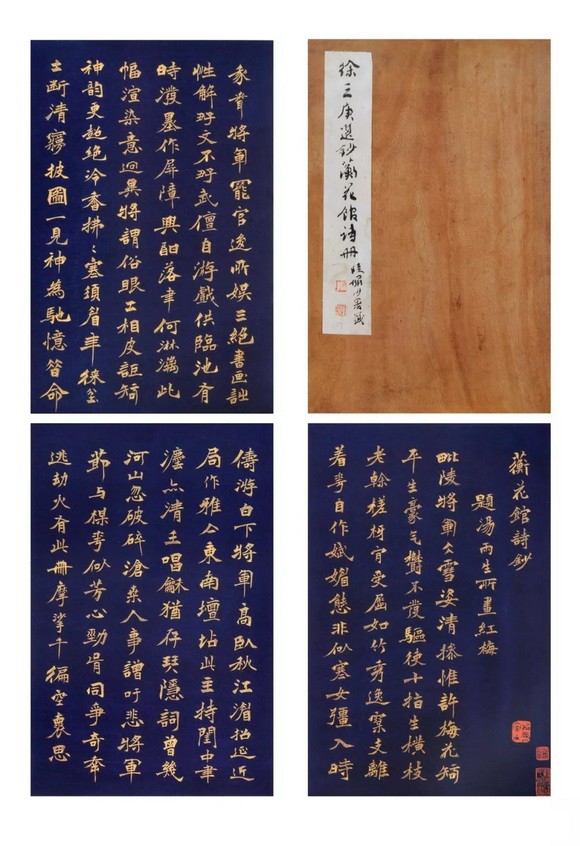 徐三庚選鈔蘅花館詩冊
蘅花館詩鈔
題湯雨生所畫紅梅
毗陵將軍仌雪姿清操惟許梅花知
平生豪气鬱不度驅使十指生橫枝
老榦槎枒肎受屈如竹秀逸支離
着萼自作娬媚態非似塞女彊入時
將軍罷官後所娛三絕書画詩
性解好文不好武僅自游戲供臨池有
時潑墨作屏障興酣落聿何淋漓此
幅渲染意迥異將謂俗眼工相皮詎知
神韵更超絕冷香拂〻塞須眉年徠
士斷清霧披圖一見神為馳憶昔命
儔游白下將軍高臥秋江湄招延近
局作雅人東南壇坫此主持閨中聿
亦清士唱龢猶存琴隱詞曾幾
河山忽破碎滄桑人事吁悲將軍
節与楳萼似芳心勁骨同爭奇奪
逃劫火有此冊摩挲千徧空裏思